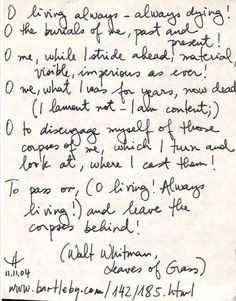 O living always - always dying!
O the burials of me, past and
present!
O me, while I stride ahead, material,
visible, imperious as ever!
O me, what I was for years, now dead
(I lament not - I am content;)
O to disengage myself of those
corpses of me, which I turn and
look at, where I cast them!
To pass on, (O living! Always
living!) and leave the
corpses behind!
(Walt Whitman,
Leaves of Grass)
11.11.04
www.bartleby.com/142/185.html